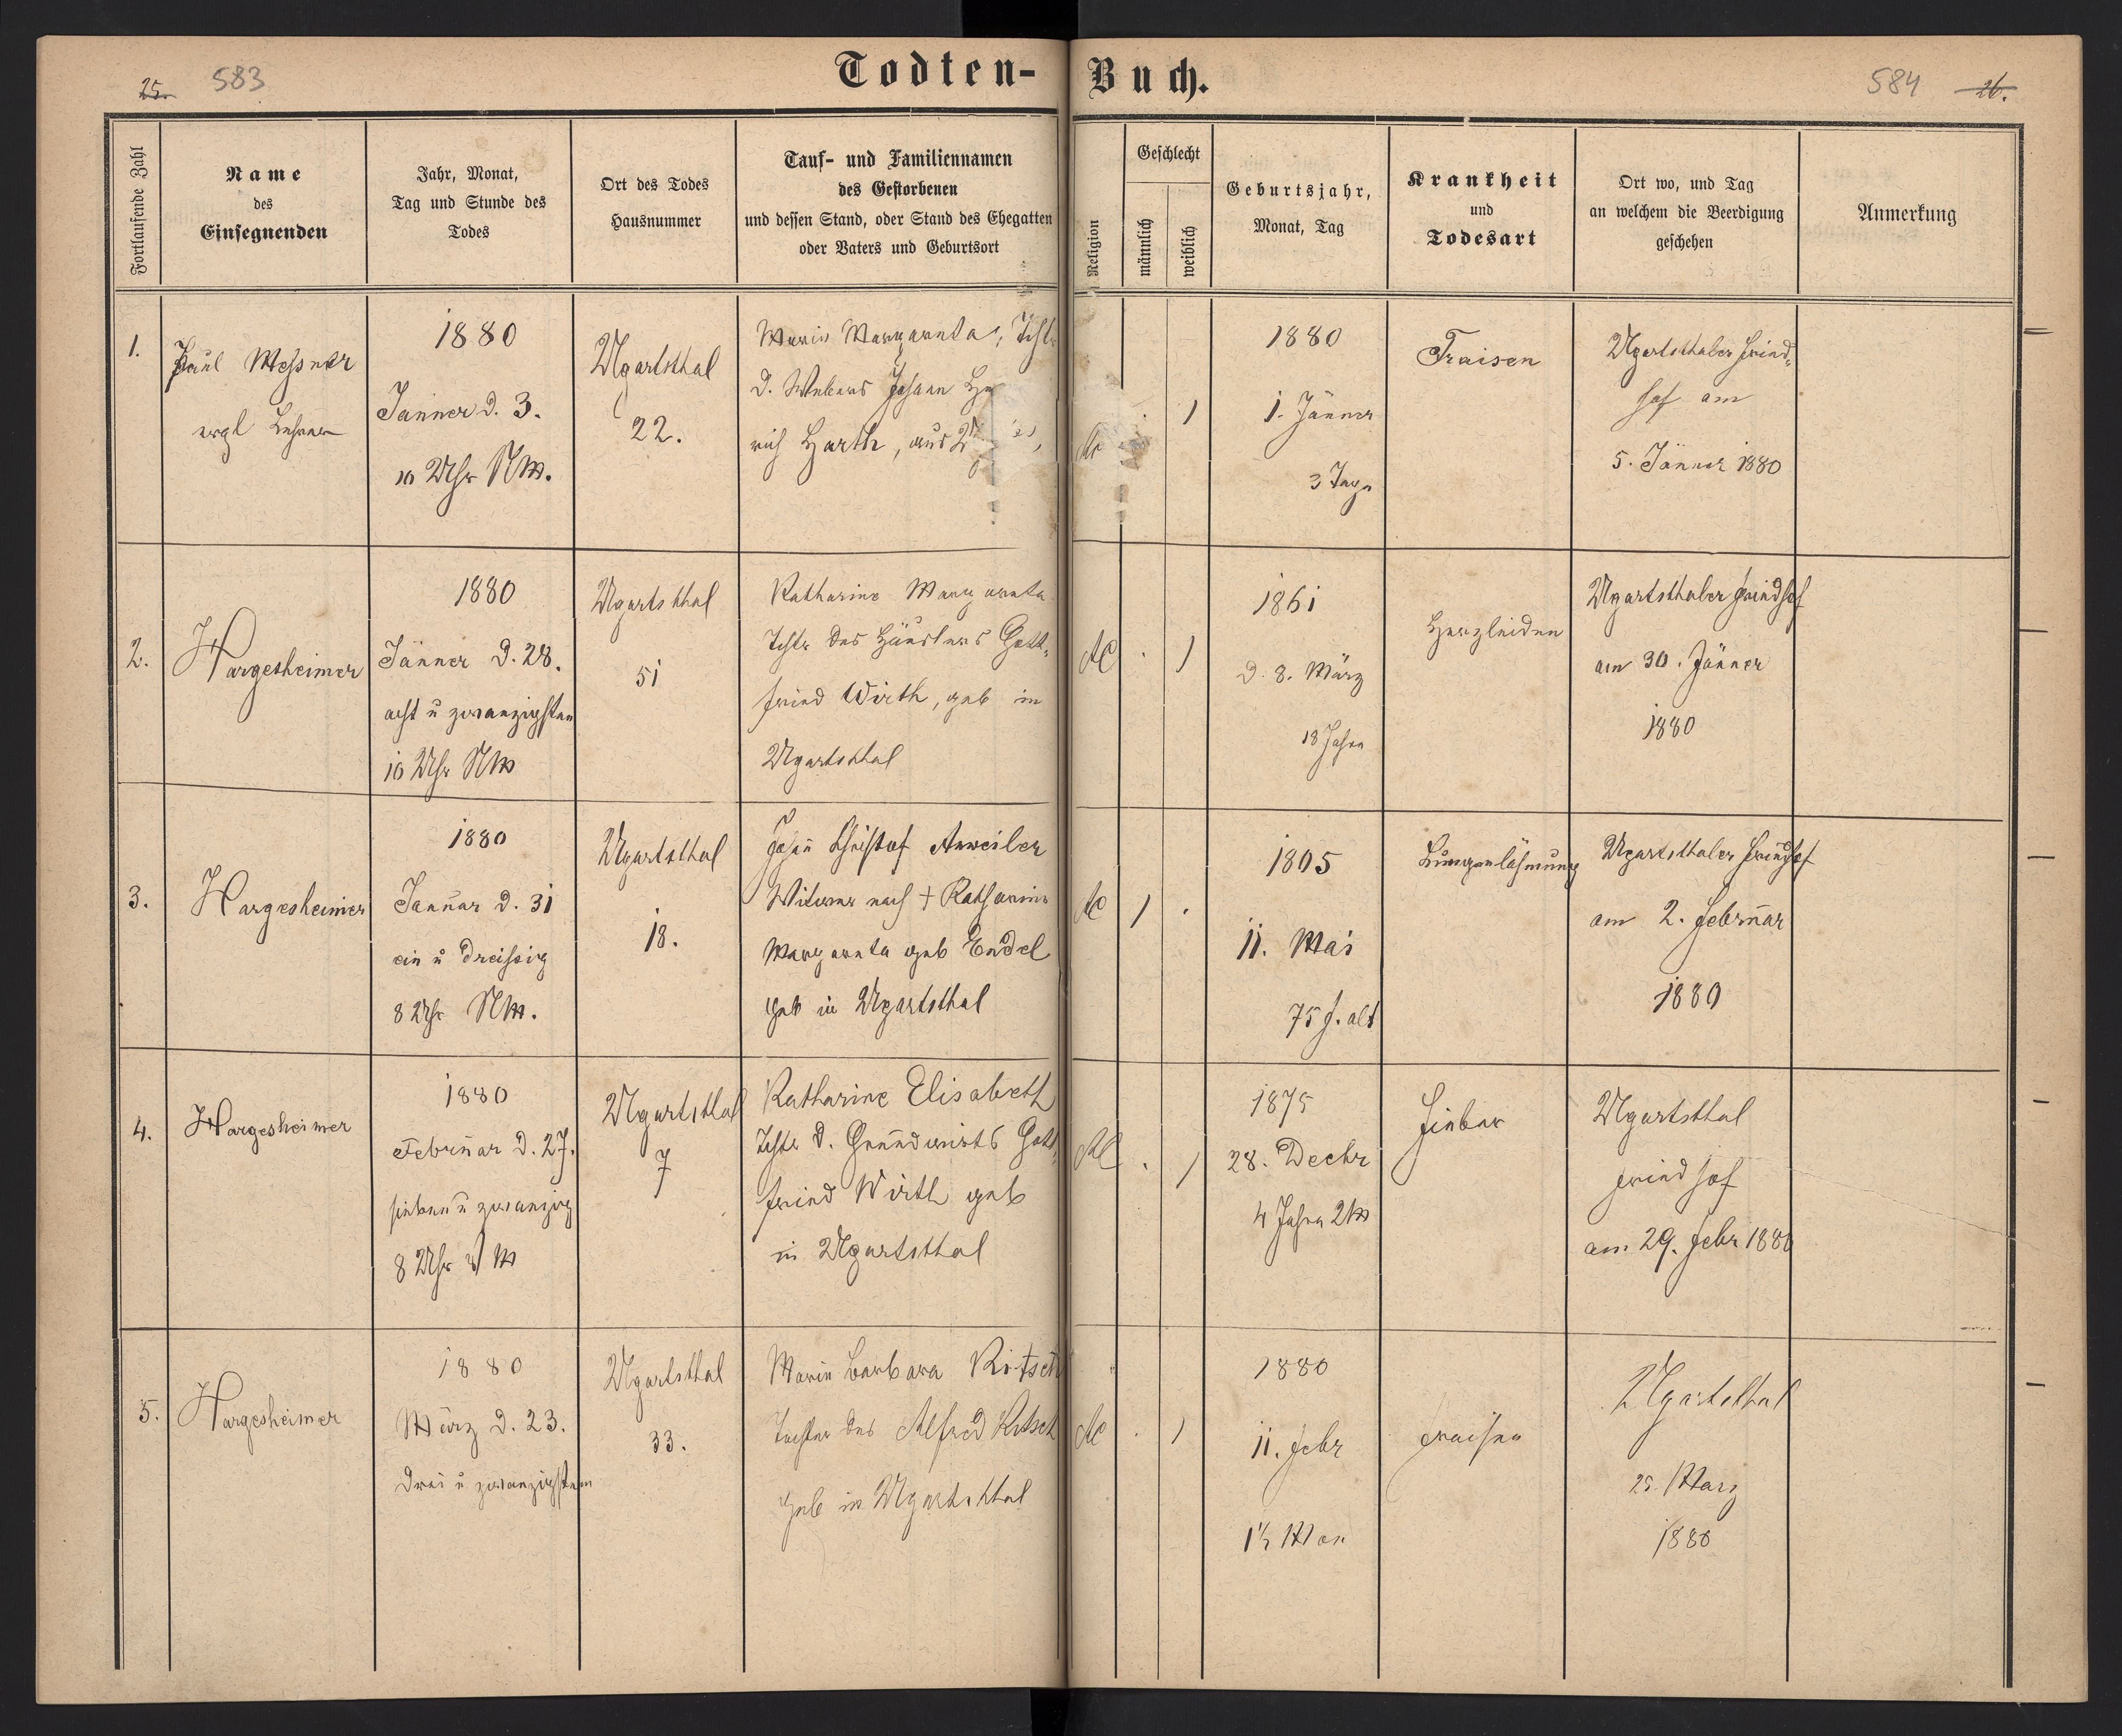 25. 583
Todten-Buch.
584 26.
Fortlaufende Zahl
Name
des
Einsegnenden
Jahr, Monat,
Tag und Stunde des
Todes
Ort des Todes
Hausnummer
Tauf- und Familiennamen
des Gestorbenen
und dessen Stand, oder Stand des Ehegatten
oder Vaters und Geburtsort
Religion
Geschlecht
männlich
weiblich
Geburtsjahr,
Monat, Tag
Krankheit
und
Todesart
Ort wo, und Tag
an welchem die Beerdigung
geschehen
Anmerkung
1.
Paul Messner
evgl Lehrer
1880
Jänner d. 3.
10 Uhr NM.
Ugartsthal
22.
Maria Margareta, Tcht
d. Webers Johann
rich Harth, aus
AC
. 1
1880
1. Jänner
3 Tage
Fraisen
Ugartsthaler Fried-
hof am
5. Jänner 1880
2.
Hargesheimer
1880
Jänner d. 28.
acht u zwanzigsten
10 Uhr NM
Ugartsthal
51
Katharine Margareta
Tchtr des Häuslers Gott-
fried Wirth, geb in
Ugartsthal
AC . 1
1861
d. 8. März
18 Jahre
Herzleiden
Ugartsthaler Friedhof
am 30. Jänner
1880
3.
Hargesheimer
1880
Januar d. 31
ein u dreissig
8 Uhr NM.
Ugartsthal
18.
Johann Christof Anweiler
Witwer nach + Katharine
Margareta geb Endel
geb in Ugartsthal
AC 1 .
1805
11. Mai
75 J. alt
Lungenlähmung
Ugartsthaler Friedhof
am 2. Februar
1880
4.
Hargesheimer
1880
Februar d. 27.
sieben u zwanzig
8 Uhr M
Ugartsthal
7
Katharine Elisabeth
Tchtr d. Grundwirts Gott-
fried Wirth geb
in Ugartsthal
AC . 1
1875
28. Decbr
4 Jahre 2 M
Fieber
Ugartsthal
Friedhof
am 29. Febr 1880
5.
Hargesheimer
1880
März d. 23.
drei u zwanzigsten
Ugartsthal
33.
Maria Barbara Ritsch
Tochter des Alfred Ritsch
geb in Ugartsthal
AC . 1
1880
11. Febr
1½ Mon
Fraisen
Ugartsthal
25. März
1880